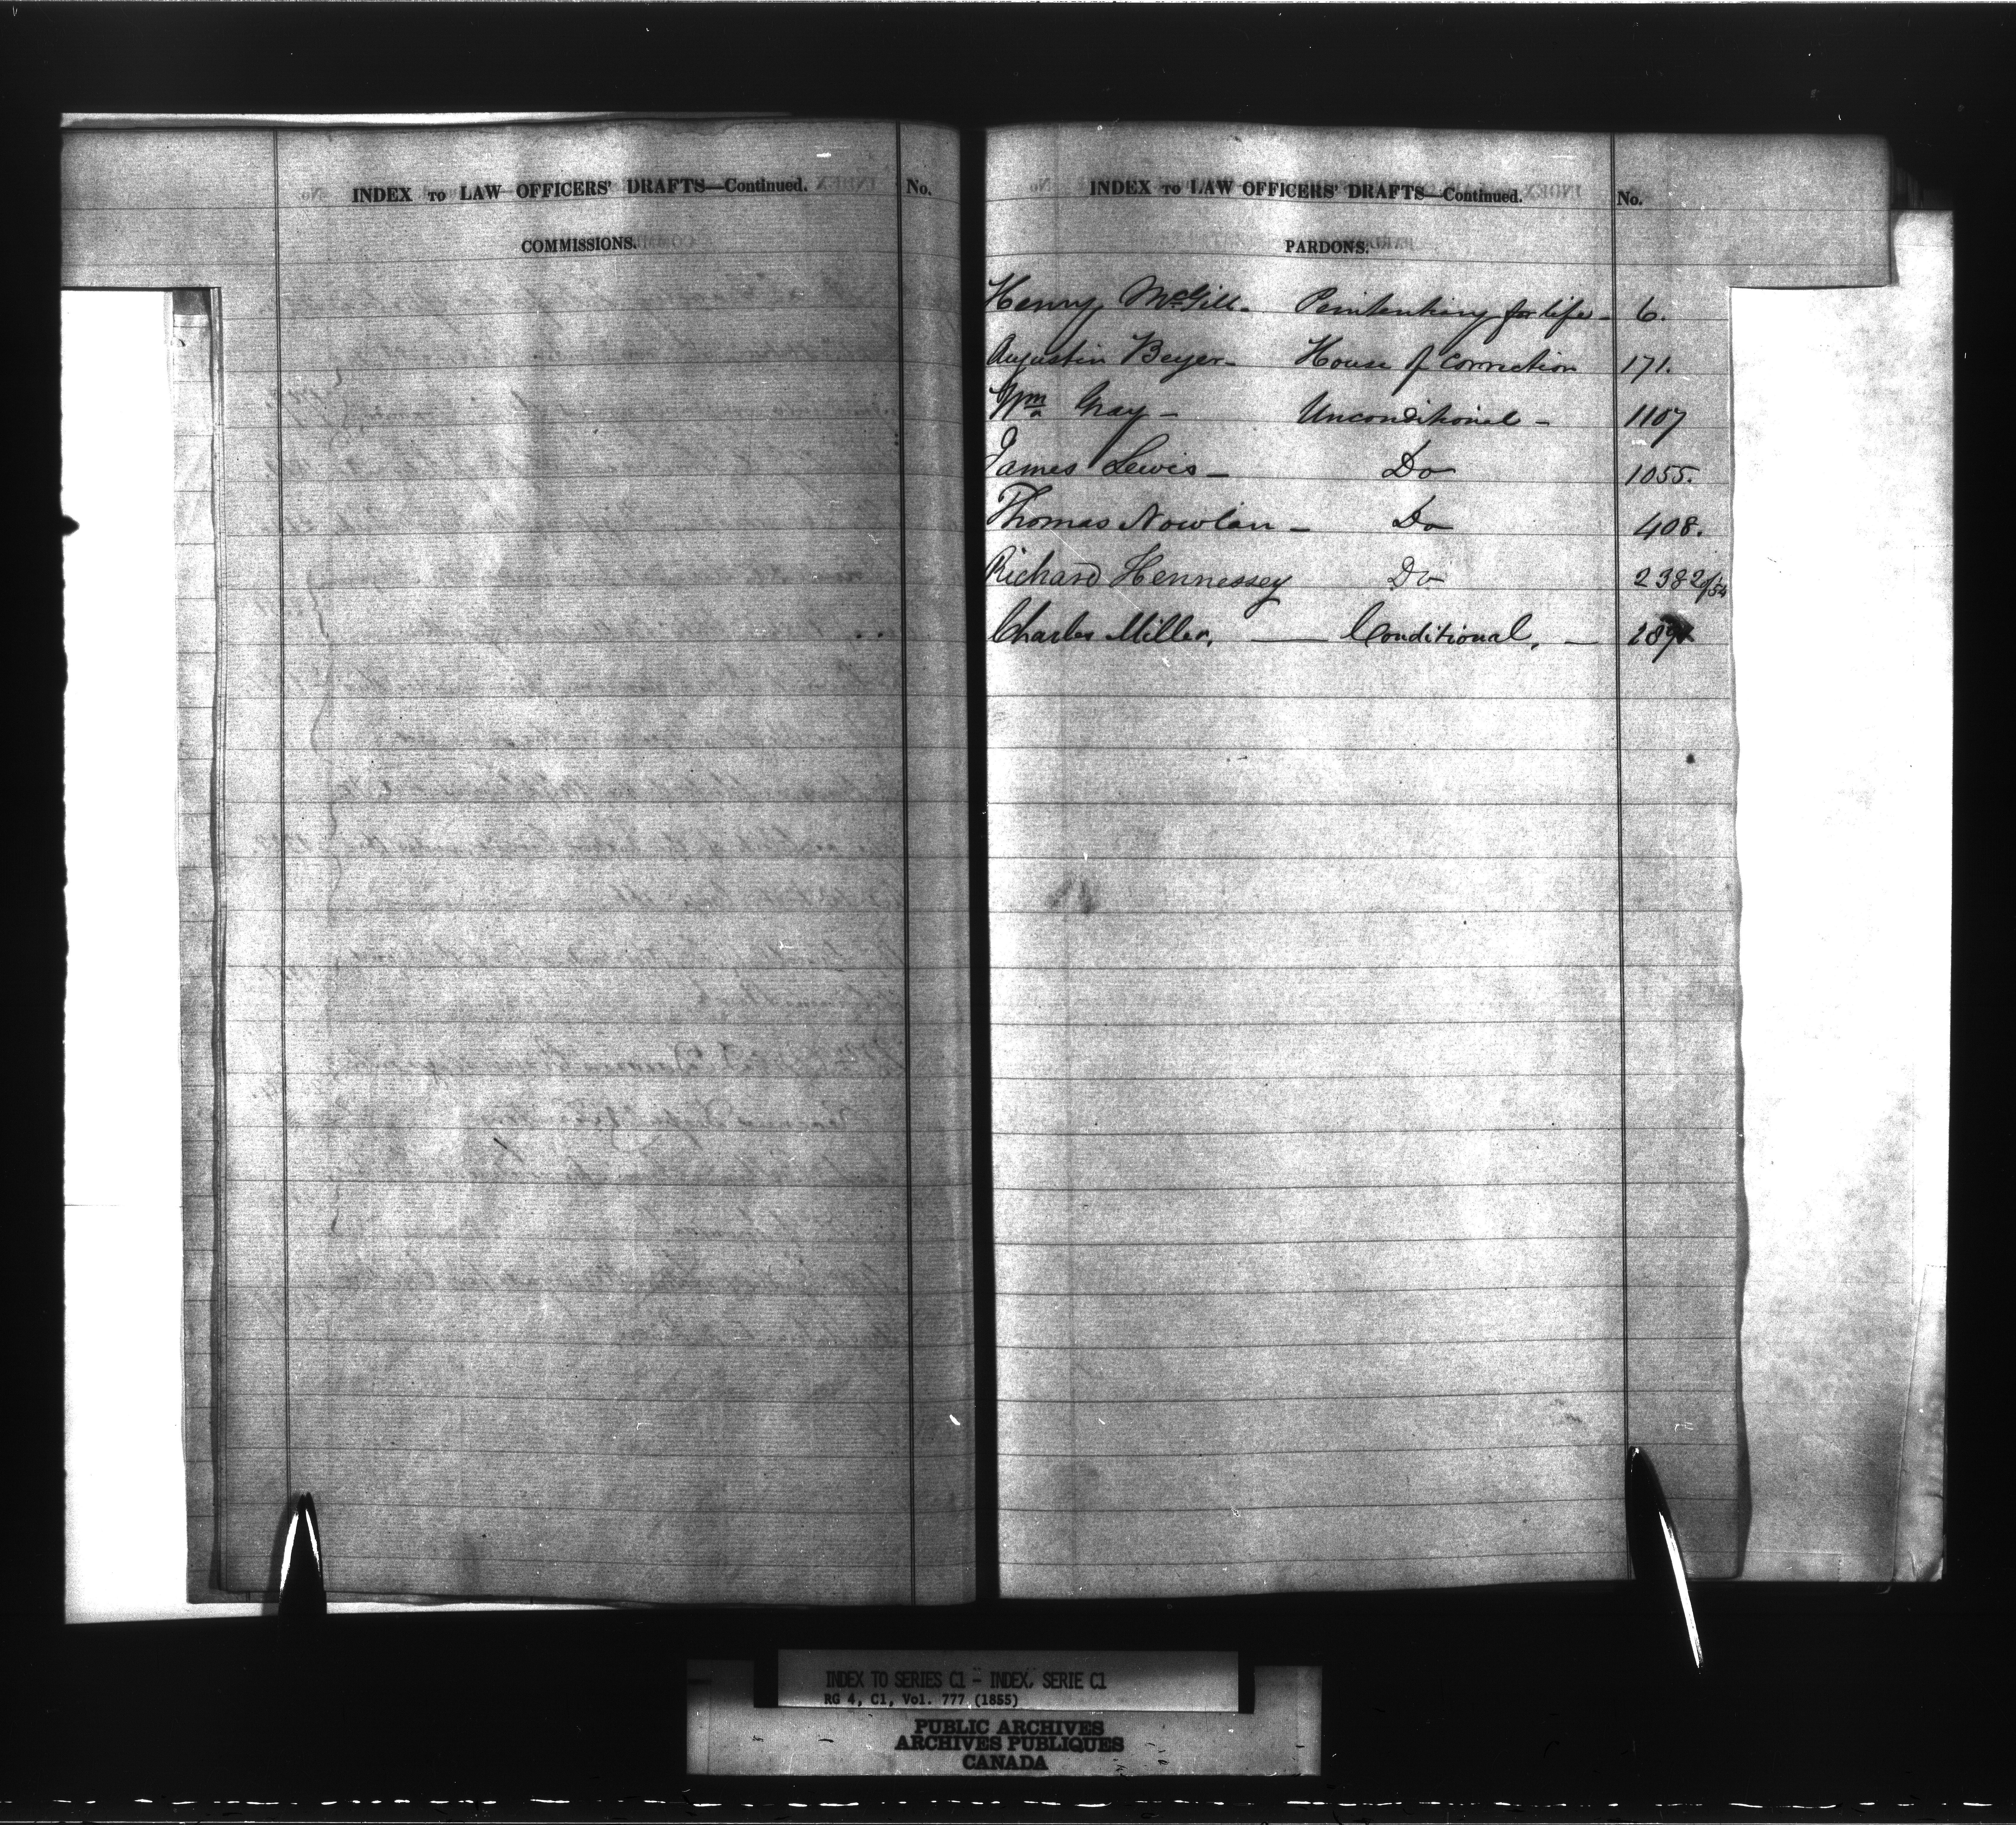 INDEX TO LAW OFFICERS' DRAFTS—Continued. No.
COMMISSIONS.
INDEX TO LAW OFFICERS' DRAFTS—Continued. No.
PARDONS.
Henry McGill - Penitentiary for life - 6.
Augustin Beyer - House of Correction 171.
Wm Gray - Unconditional - 1107
James Lewis - Do 1055.
Thomas Nowlan - Do 408.
Richard Hennessey Do 2382 of/54
Charles Miller, — Conditional, —
INDEX TO SERIES C1 - INDEX, SERIE C1
RG 4, C1, Vol. 777 (1855)
PUBLIC ARCHIVES
ARCHIVES PUBLIQUES
CANADA